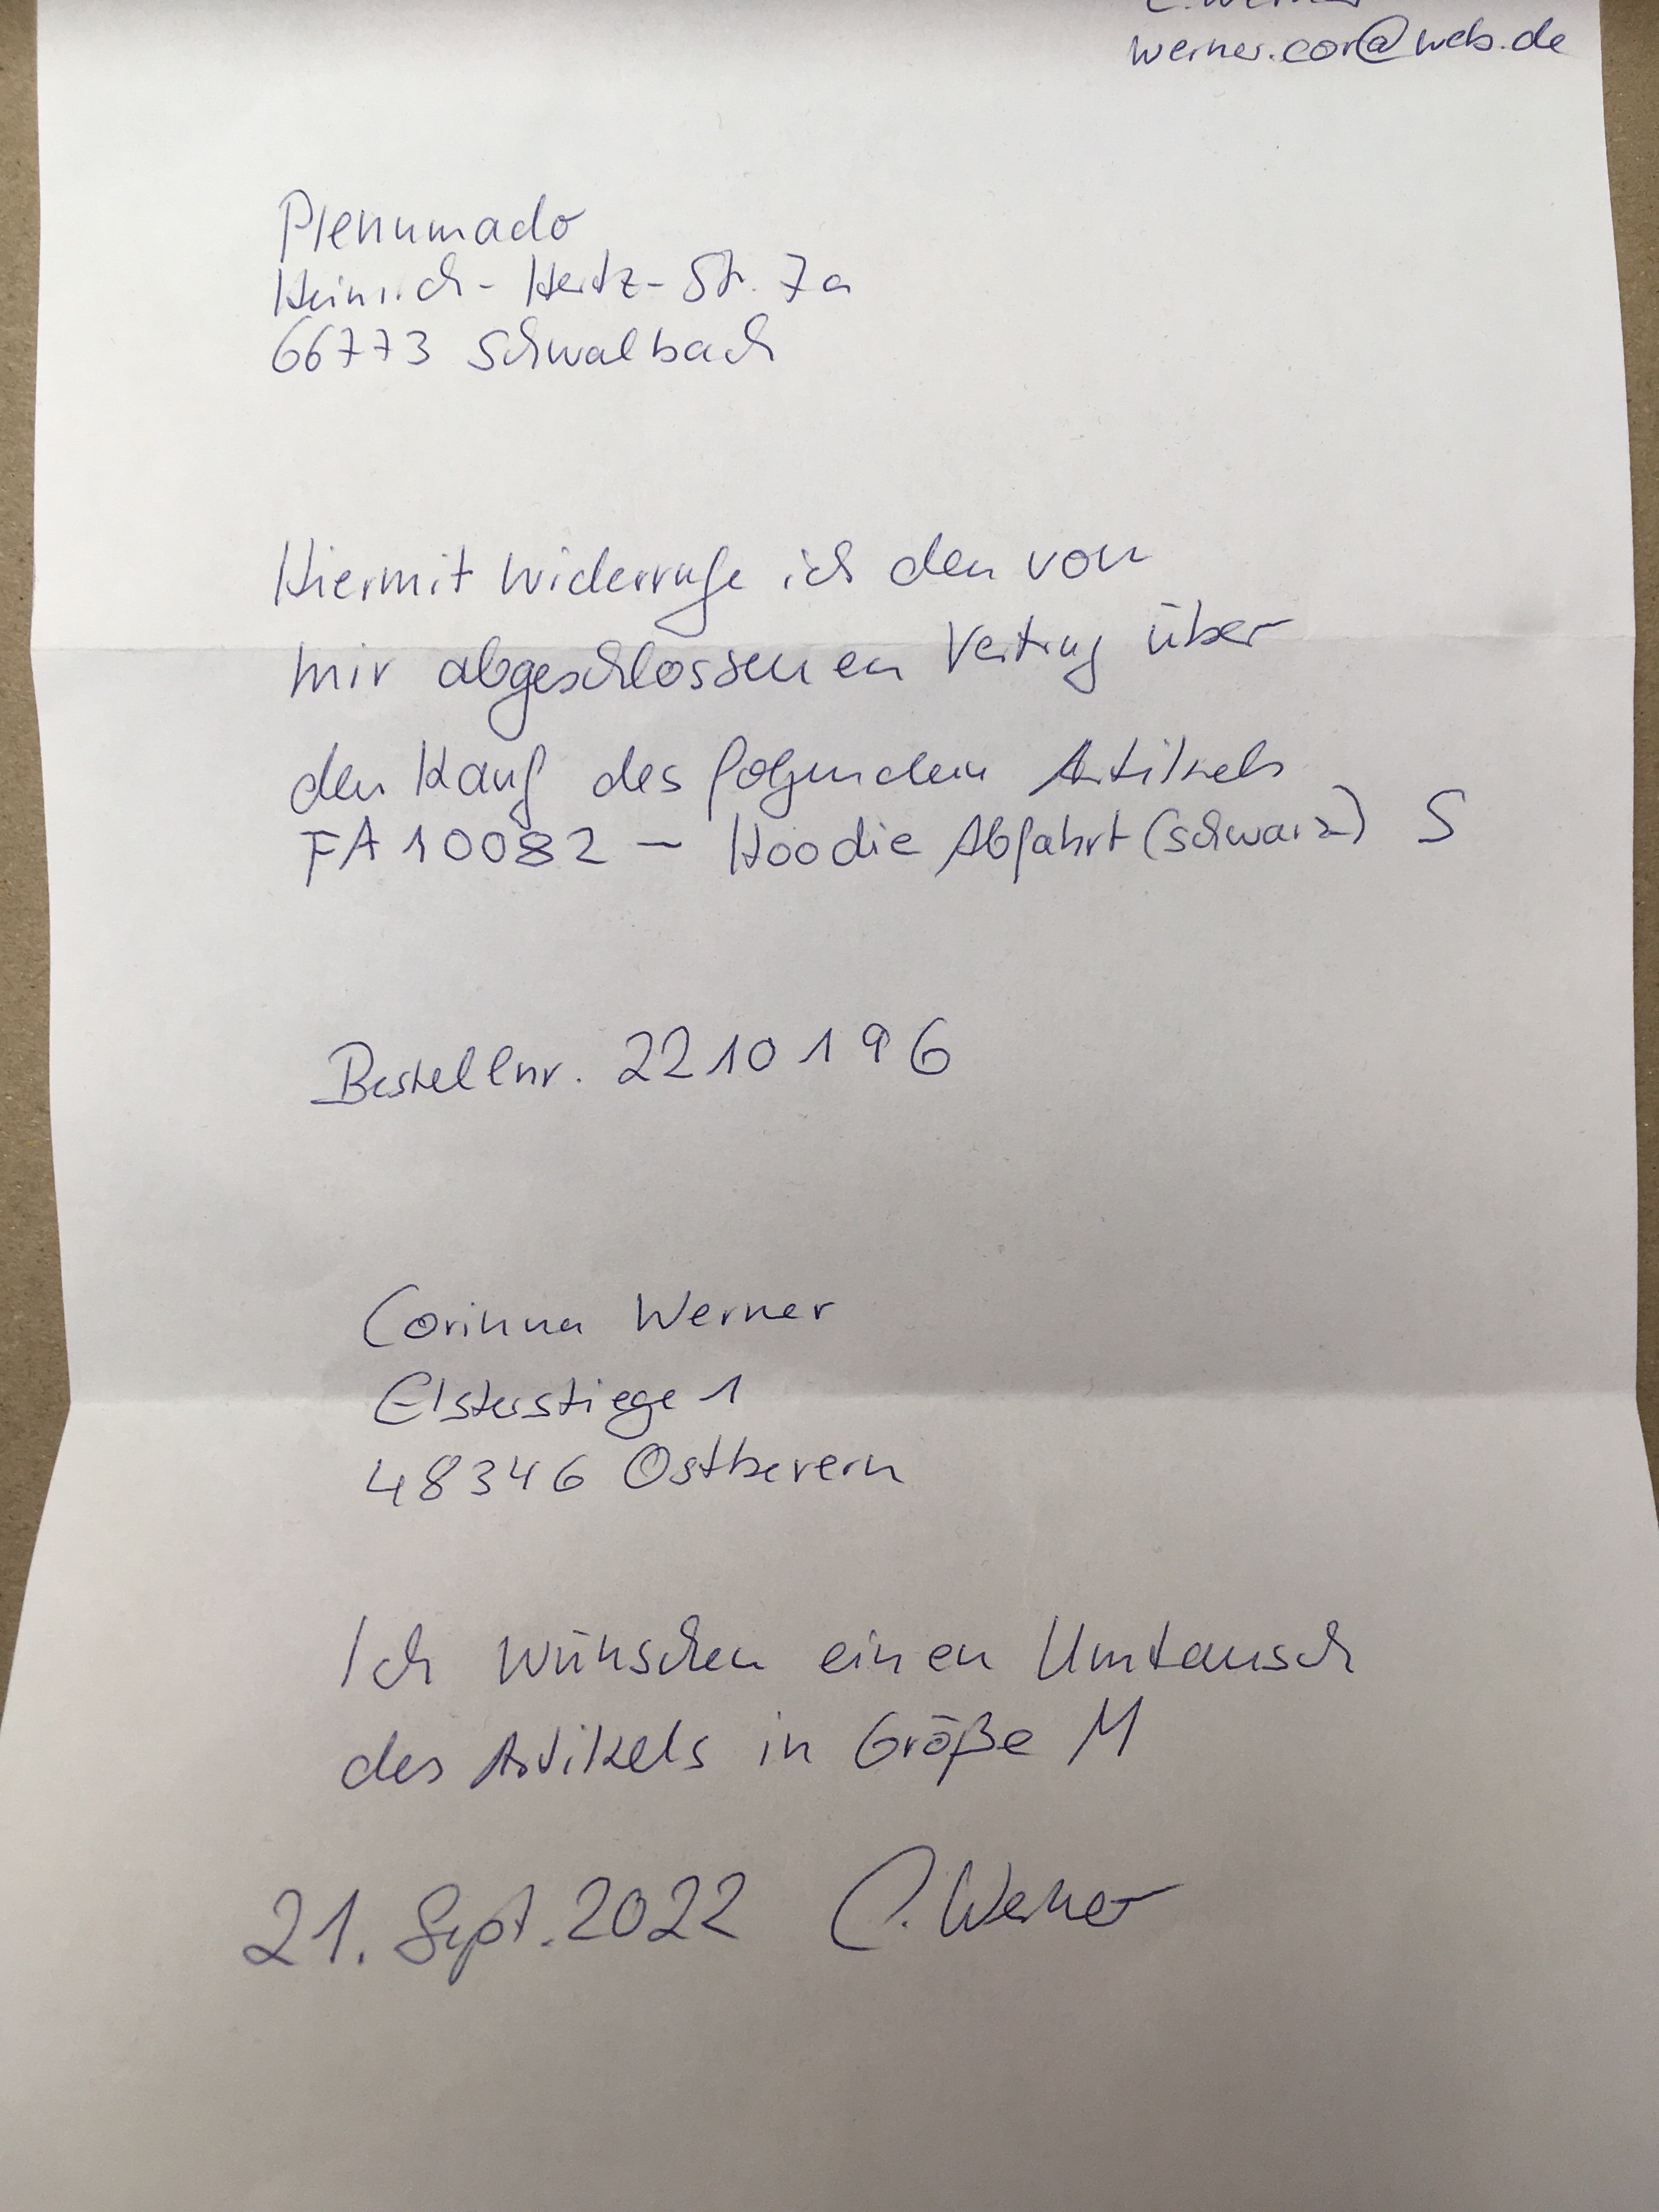 C. Werner
werner.cor@web.de
Plenumado
Heinrich-Hertz-Str. 7a
66773 Schwalbach
Hiermit widerrufe ich den von
mir abgeschlossenen Vertrag über
den Kauf des folgenden Artikels
FA10082 - Hoodie Abfahrt (schwarz) S
Bestellnr. 2210196
Corinna Werner
Elsterstiege 1
48346 Ostbevern
Ich wünschen einen Umtausch
des Artikels in Größe M
21. Sept. 2022 C. Werner